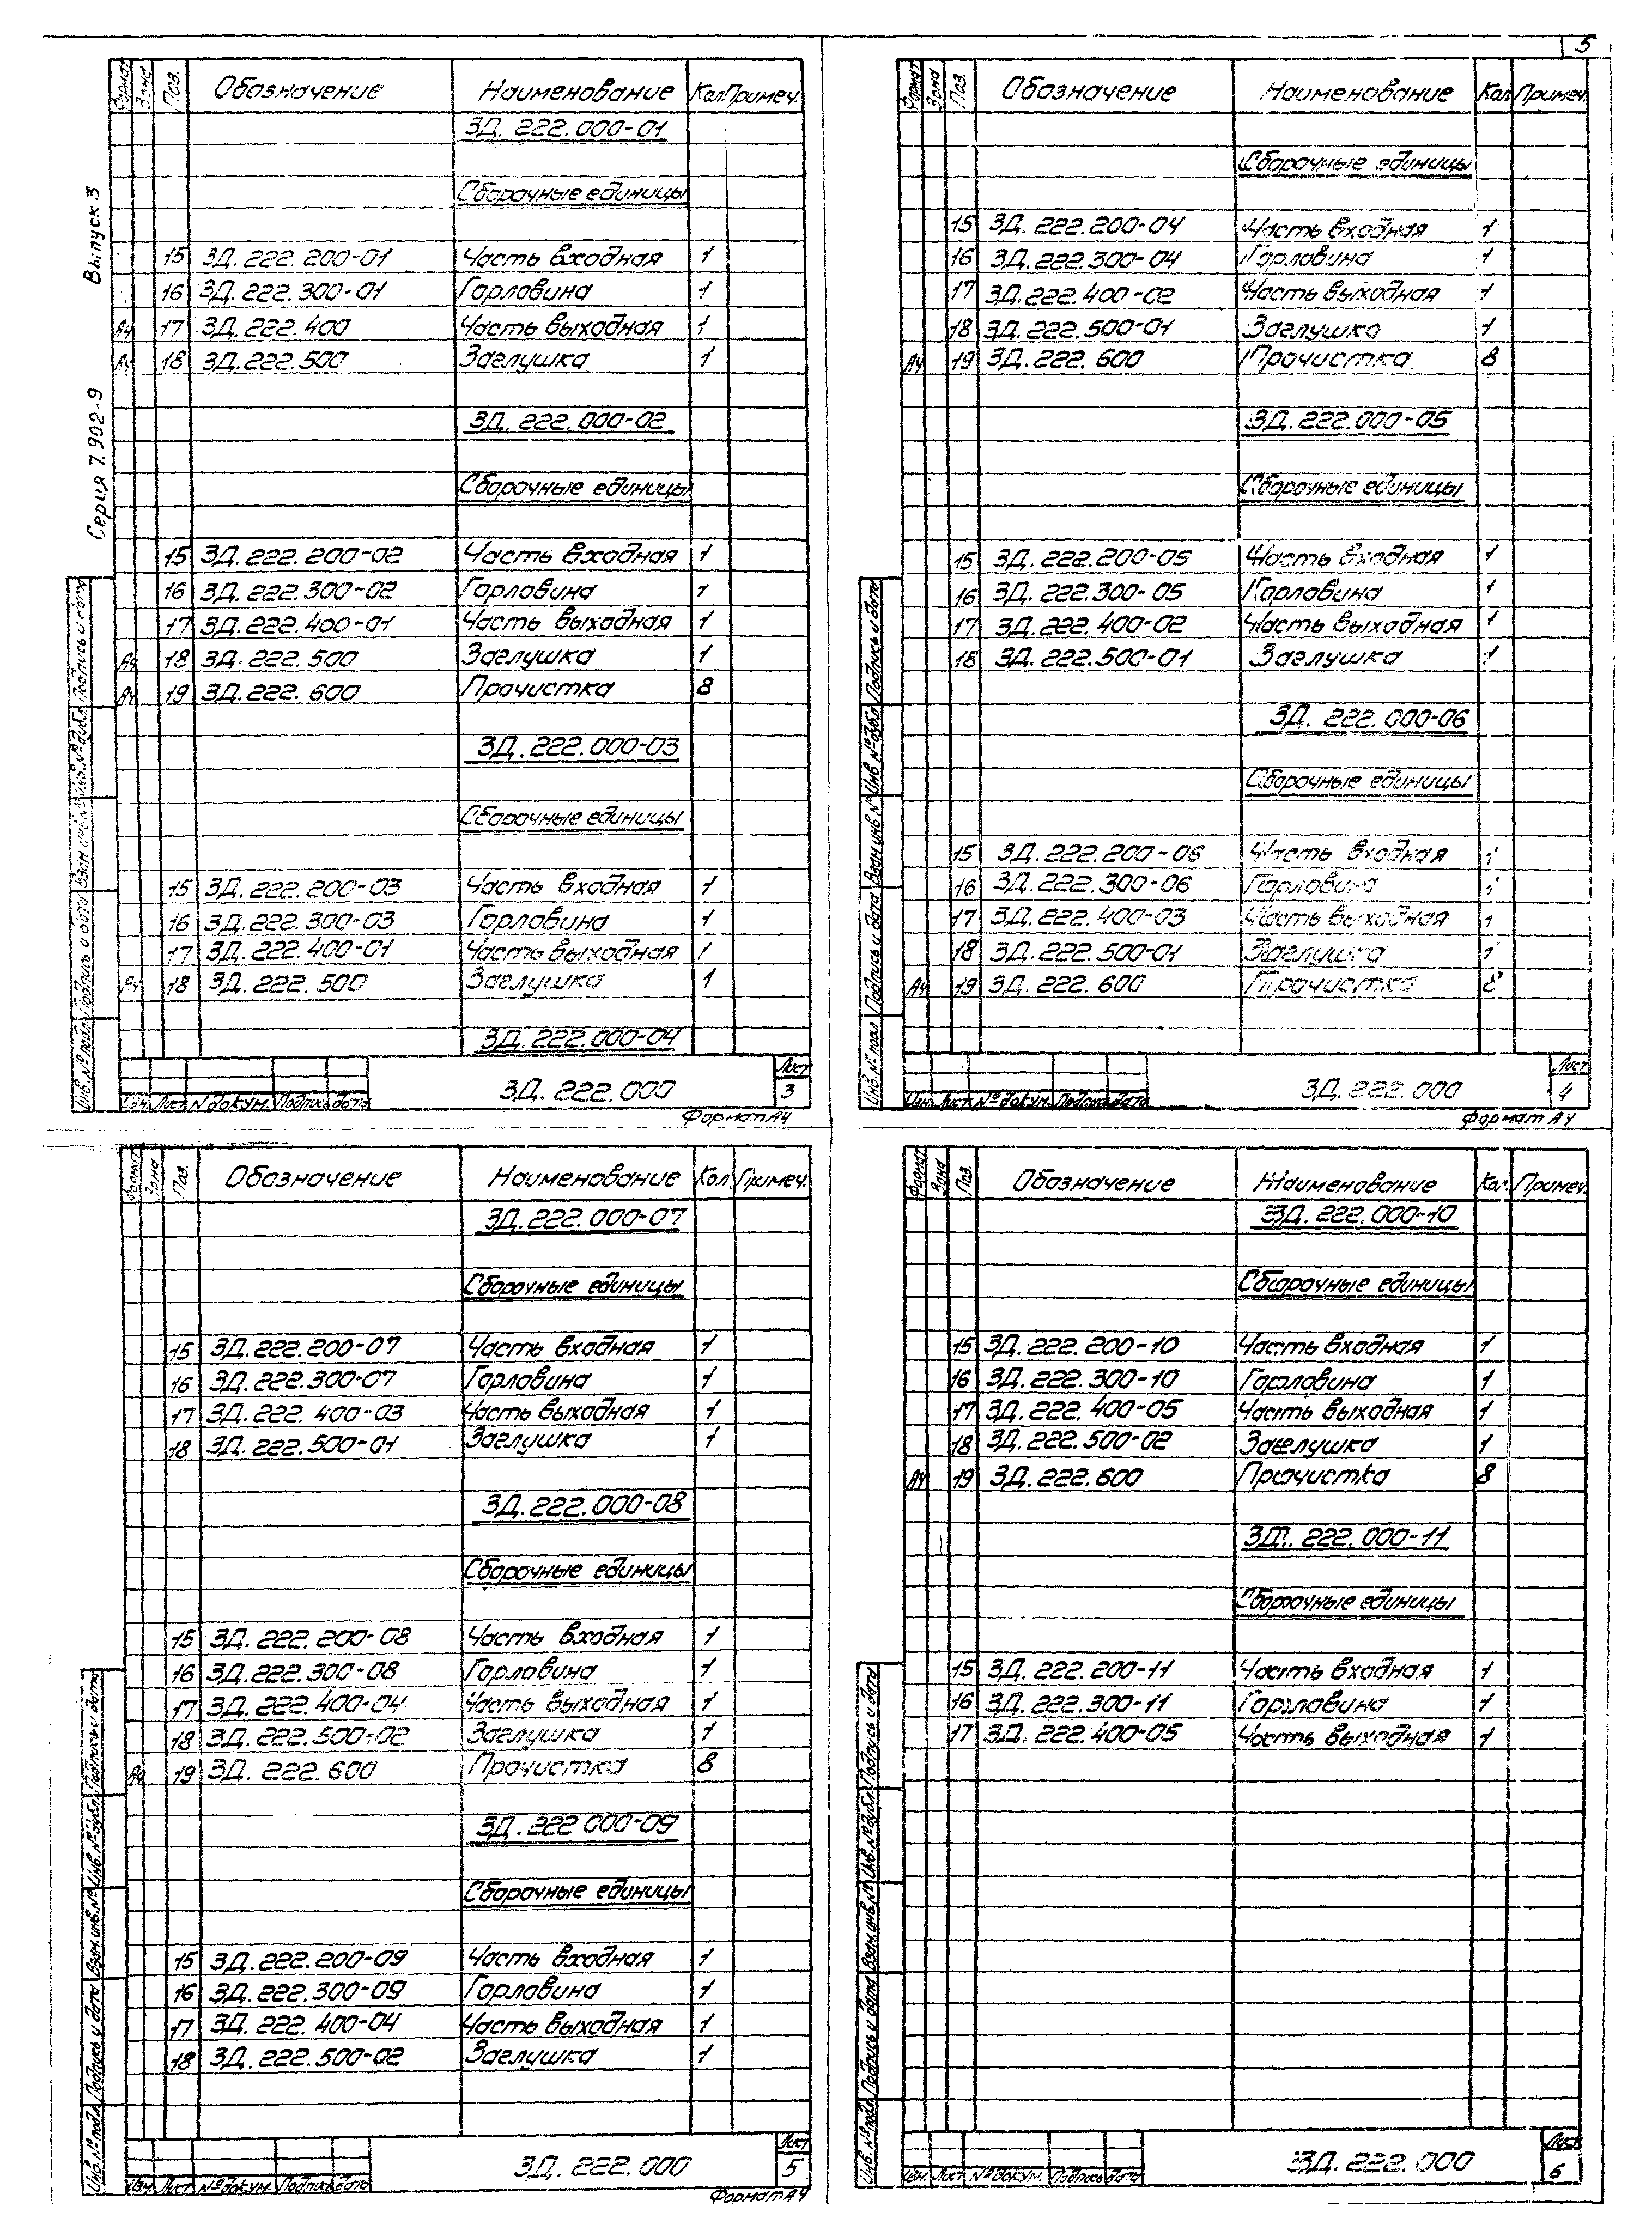 5
Серия 7.902-9 Выпуск 3
Формат Зона Поз. Обозначение Наименование Кол. Примеч.
ЗД. 222.000-01
Сборочные единицы
15 ЗД. 222. 200-01 Часть входная 1
16 ЗД. 222. 300-01 Горловина 1
А4 17 ЗД. 222. 400 Часть выходная 1
А4 18 ЗД. 222. 500 Заглушка 1
ЗД. 222. 000-02
Сборочные единицы
15 ЗД. 222. 200-02 Часть входная 1
16 ЗД. 222. 300-02 Горловина 1
17 ЗД. 222. 400-01 Часть выходная 1
А4 18 ЗД. 222. 500 Заглушка 1
А4 19 ЗД. 222. 600 Прочистка 8
ЗД. 222. 000-03
Сборочные единицы
15 ЗД. 222. 200-03 Часть входная 1
16 ЗД. 222. 300-03 Горловина 1
17 ЗД. 222. 400-01 Часть выходная 1
А4 18 ЗД. 222. 500 Заглушка 1
ЗД. 222.000-04
Инв. № подл. Подпись и дата Взам инв. № Инв. № дубл. Подпись и дата
Изм. Лист N докум. Подпись дата
ЗД. 222. 000
Лист
3
Формат А4
Формат Зона Поз. Обозначение Наименование Кол Примеч.
Сборочные единицы
15 ЗД. 222. 200-04 Часть входная 1
16 ЗД. 222. 300-04 Горловина 1
17 ЗД. 222. 400-02 Часть выходная 1
18 ЗД. 222. 500-01 Заглушка 1
А4 19 ЗД. 222. 600 Прочистка 8
ЗД. 222.000-05
Сборочные единицы
15 ЗД. 222. 200-05 Часть входная 1
16 ЗД. 222. 300-05 Горловина 1
17 ЗД. 222. 400-02 Часть выходная 1
18 ЗД. 222.500-01 Заглушка 1
ЗД. 222. 000-06
Сборочные единицы
15 ЗД. 222. 200-06 Часть входная 1
16 ЗД. 222. 300-06 Горловина 1
17 ЗД. 222. 400-03 Часть выходная 1
18 ЗД. 222. 500-01 Заглушка 1
А4 19 ЗД. 222. 600 Прочистка 8
Инв. № подл Подпись и дата Взам инв № Инв № дубл Подпись и дата
Изм. Лист № докум. Подпись дата
ЗД. 222. 000
Лист
4
Формат А4
Формат Зона Поз. Обозначение Наименование Кол. Примеч.
ЗД. 222. 000-07
Сборочные единицы
15 ЗД. 222. 200-07 Часть входная 1
16 ЗД. 222. 300-07 Горловина 1
17 ЗД. 222. 400-03 Часть выходная 1
18 ЗД. 222. 500-01 Заглушка 1
ЗД. 222. 000-08
Сборочные единицы
15 ЗД. 222. 200-08 Часть входная 1
16 ЗД. 222. 300-08 Горловина 1
17 ЗД. 222. 400-04 Часть выходная 1
18 ЗД. 222. 500-02 Заглушка 1
А4 19 ЗД. 222. 600 Прочистка 8
ЗД. 222 000-09
Сборочные единицы
15 ЗД. 222. 200-09 Часть входная 1
16 ЗД. 222. 300-09 Горловина 1
17 ЗД. 222. 400-04 Часть выходная 1
18 ЗД. 222. 500-02 Заглушка 1
Инв. № подл. Подпись и дата Взам. инв. № Инв. № дубл. Подпись и дата
Изм. Лист № докум. Подпись дата
ЗД. 222. 000
Лист
5
Формат А4
Формат Зона Поз. Обозначение Наименование Кол. Примеч.
ЗД. 222. 000-10
Сборочные единицы
15 ЗД. 222. 200-10 Часть входная 1
16 ЗД. 222. 300-10 Горловина 1
17 ЗД. 222. 400-05 Часть выходная 1
18 ЗД. 222. 500-02 Заглушка 1
А4 19 ЗД. 222. 600 Прочистка 8
ЗД. 222. 000-11
Сборочные единицы
15 ЗД. 222. 200-11 Часть входная 1
16 ЗД. 222. 300-11 Горловина 1
17 ЗД. 222. 400-05 Часть выходная 1
Инв. № подл. Подпись и дата Взам. инв. № Инв. № дубл. Подпись и дата
Изм. Лист № докум. Подпись дата
ЗД. 222. 000
Лист
6